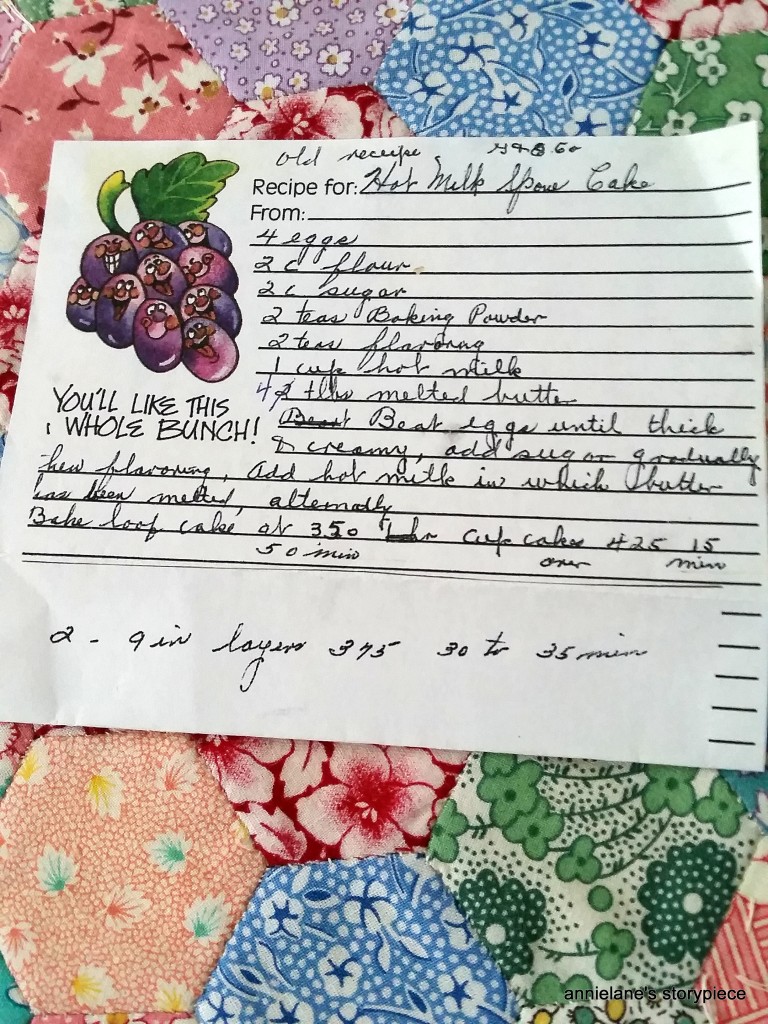 old receipe
Recipe for: Hot Milk Spon Cake
From:
4 eggs
2 c flour
2 c sugar
2 teas Baking Powder
2 teas flavoring
1 cup hot milk
4 tbs melted butter
Beat eggs until thick
& creamy, add sugar gradually
then flavoring, add hot milk in which butter
has been melted, alternatly
Bake loaf cake at 350 hr cup cakes 425 15
50 min oven min
2 - 9 in layers 375 30 to 35 min
YOU'LL LIKE THIS
WHOLE BUNCH!
annielane's storypiece